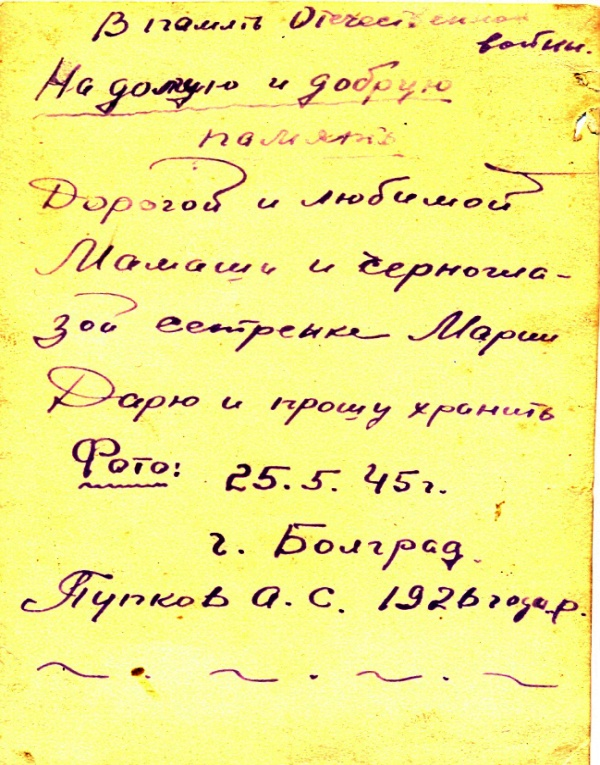 В память Отечественной
войны.
На долгую и добрую
память
Дорогой и любимой
Мамаши и черногла-
зой сетренке Марии
Дарю и прошу хранить
Фото: 25.5.45г.
г. Болград.
Пупков А.С. 1926 года р.